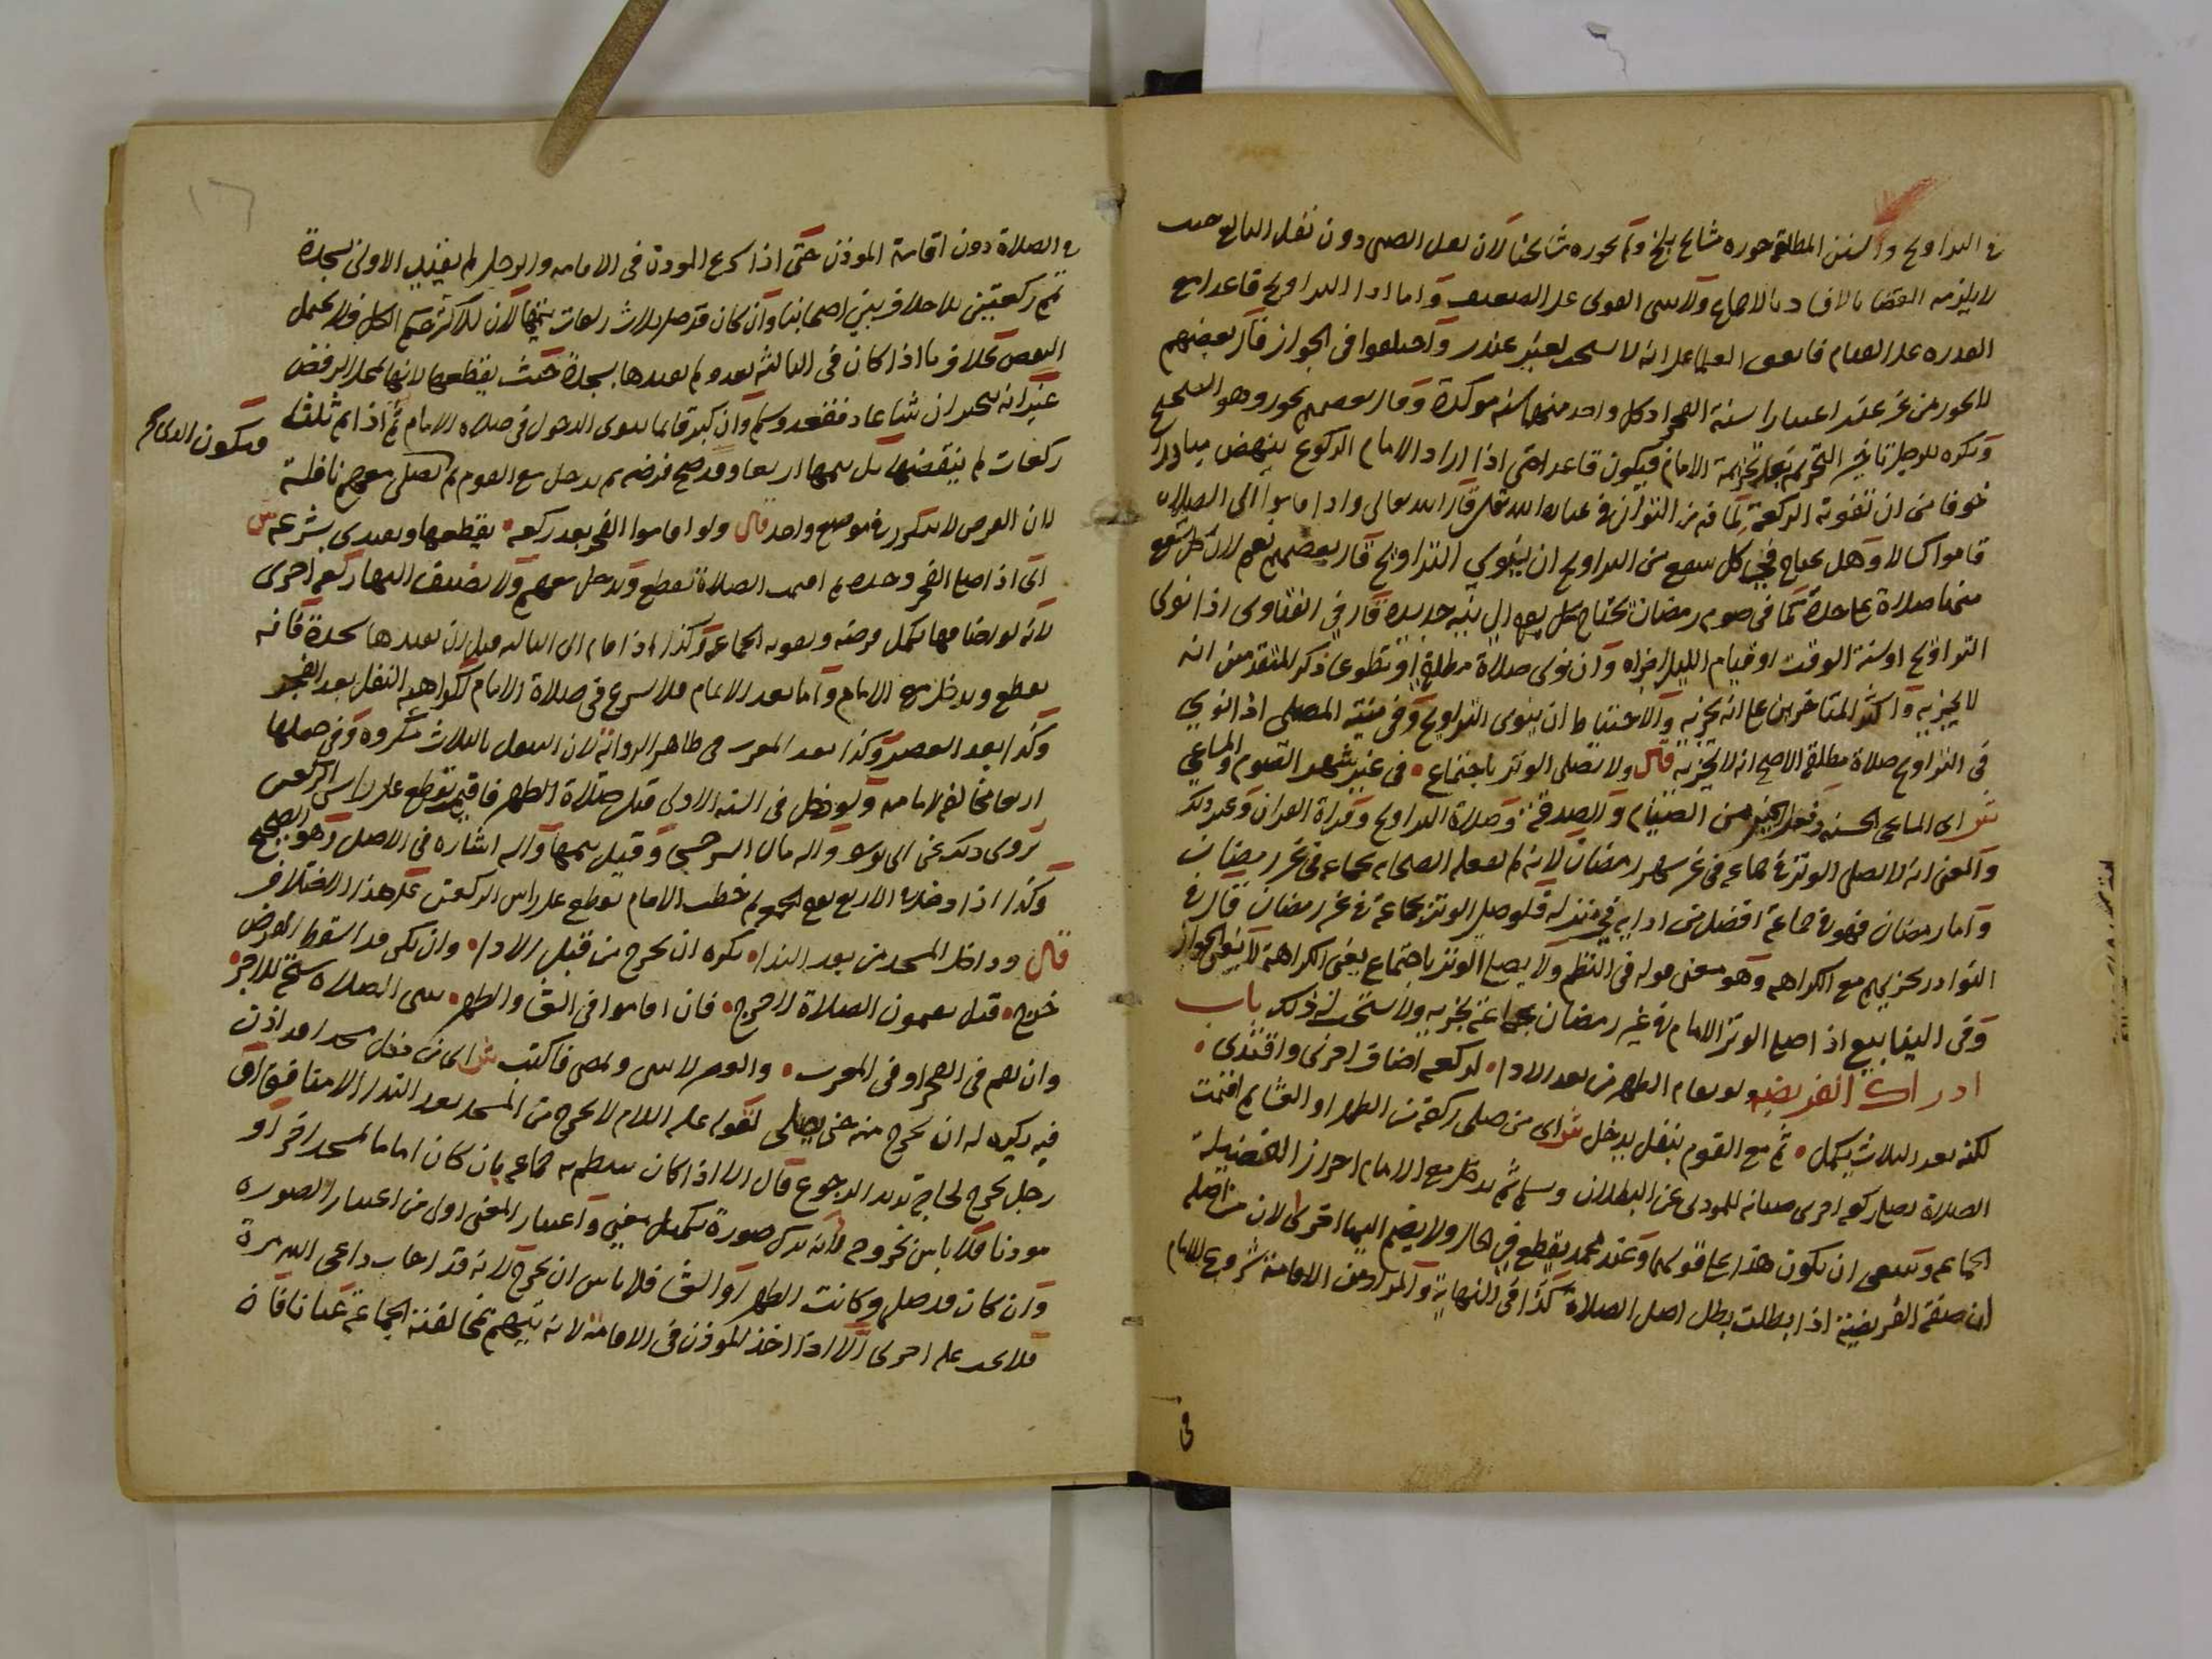 في التراويح والسنن المطلقة جوزه مشايخ بلخ ولم يجوزه مشايخنا لان نفل الصبي دون نفل البالغ حيث
لا يلزمه القضا بالافساد بالاجماع ولا يبنى القوى على الضعيف واما اداء التراويح قاعدا مع
القدرة على القيام فاتفق العلما على انه لا يستحب بغير عذر واختلفوا في الجواز قال بعضهم
لا يجوز من غير عذر اعتبارا بسنة الفجر اذ كل واحد منهما سنة مؤكدة وقال بعضهم يجوز وهو الصحيح
ويكره للرجل تاخير التحريم بعد تحريمة الامام فيكون قاعدا حتى اذا اراد الامام الركوع ينهض مبادرا
خوفا من ان تفوته الركعة لما فيه من التواني في عبادة الله تعالى قال الله تعالى واذا قاموا الى الصلاة
قاموا كسالا وهل يحتاج في كل شفع من التراويح ان ينوي التراويح قال بعضهم نعم لان كل شفع
منها صلاة على حدة كما في صوم رمضان يحتاج كل يوم الى نية جديدة قال في الفتاوى اذا نوى
التراويح او سنة الوقت او قيام الليل اجزاه وان نوى صلاة مطلقة او تطوعا ذكر المتقدمين انه
لا يجزيه واكثر المتاخرين على انه يجزيه والاحتياط ان ينوي التراويح وفي منية المصلي اذا نوى
في التراويح صلاة مطلقة الاصح انه لا يجزيه قال ولا يصلى الوتر باجتماع • في غير شهر الصوم والمساعي
ش اى المساعي الحسنة وفعل الخير من الصيام والصدقة وصلاة التراويح وقراة القران وغير ذلك
والمعنى انه لا يصلى الوتر في جماعة في غير شهر رمضان لانه لم يفعله الصحابة بجماعة في غير رمضان
واما رمضان فهو في جماعة افضل من ادايه في منزله فلو صلى الوتر بجماعة في غير رمضان قال في
النوادر يجزيهم مع الكراهة وهو معنى قوله في النظم ولا يصلى الوتر باجتماع يعني الكراهة لا نفي الجواز
وفي الينابيع اذا صلى الوتر الامام في غير رمضان بجماعة يجزيه ولا يستحب له ذلك باب
ادراك الفريضة ولو يقام الظهر من بعد الادا • لركعة اضاف اخرى واقتدى •
لكنه بعد الثلاث يكمل • ثم مع القوم بنفل يدخل ش اى من صلى ركعة من الظهر او العشا ثم اقيمت
الصلاة يصلي ركعة اخرى صيانة للمودى عن البطلان ويسلم ثم يدخل مع الامام احرازا لفضيلة
الجماعة وينبغي ان يكون هذا على قولهما وعند محمد يقطع في الحال ولا يضم اليها اخرى لان من اصله
ان صفة الفريضة اذا بطلت بطل اصل الصلاة كذا في النهاية والمراد من الاقامة شروع الامام
في
١٦
في الصلاة دون اقامة الموذن حتى اذا شرع الموذن في الاقامة والرجل لم يقيد الاولى بسجدة
يتم ركعتين بلا خلاف بين اصحابنا وان كان قد صلى ثلاث ركعات يتمها لان للاكثر حكم الكل فلا يحتمل
النقض بخلاف ما اذا كان في الثالثة بعد ولم يقيدها بسجدة حيث يقطعها لانها بمحل الرفض
غير انه مخير ان شا عاد فقعد وسلم وان كبر قايما ينوي الدخول في صلاة الامام ثم اذا اتم ثلاث
ويكون الذي
ركعات لم ينقضها بل يتمها اربعا وقد صح فرضه ثم يدخل مع القوم ثم يصلي معهم نافلة
لان الفرض لا يتكرر في موضع واحد قال ولو اقاموا الفجر بعد ركعة • يقطعها ويقتدي بشرعة ش
اى اذا صلى الفجر وحده ثم اقيمت الصلاة يقطع ويدخل معهم ولا يضيف اليها ركعة اخرى
لانه لو اضافها يكمل فرضه وتفوته الجماعة وكذا اذا قام الى الثانية قبل ان يقيدها بسجدة فانه
يقطع ويدخل مع الامام واما بعد الاتمام فلا يشرع في صلاة الامام لكراهية النفل بعد الفجر
وكذا بعد العصر وكذا بعد المغرب في ظاهر الرواية لان التنفل بالثلاث مكروه وفي جعلها
اربعا مخالفة لامامه ولو دخل في السنة الاولى قبل صلاة الظهر فاقيمت يقطع على راس الركعتين
يروى ذلك عن ابي يوسف واليه مال السرخسي وقيل يتمها واليه اشارة في الاصل وهو الصحيح
وكذا اذا دخل في الاربع يوم الجمعة ثم خطب الامام يقطع على راس الركعتين على هذا الاختلاف
قال وداخل المسجد من بعد الندا • يكره ان يخرج من قبل الادا • وان يكن قد اسقط الفرض
خرج • قبل يقيمون الصلاة لا حرج • فان اقاموا في العشا والظهر • يبقى الصلاة سنح للاجر •
وان تقم في الفجر او في المغرب • والعصر لا يبقى ولمضى فاكتب ش اى من دخل مسجدا قد اذن
فيه يكره له ان يخرج منه حتى يصلي لقوله عليه السلام لا يخرج من المسجد بعد الندا الا منافق او
رجل يخرج لحاجة يريد الرجوع قال الا اذا كان ينتظم به جماعة بان كان اماما لمسجد اخر او
موذنا فلا باس بخروجه لانه ترك صورة تكميل معنى واعتبار المعنى اولى من اعتبار الصورة
وان كان قد صلى وكانت الظهر او العشا فلا باس ان يخرج لانه قد اجاب داعي الله مرة
فلا يجب عليه اخرى الا اذا اخذ الموذن في الاقامة لانه يتهم بمخالفة الجماعة عيانا فان